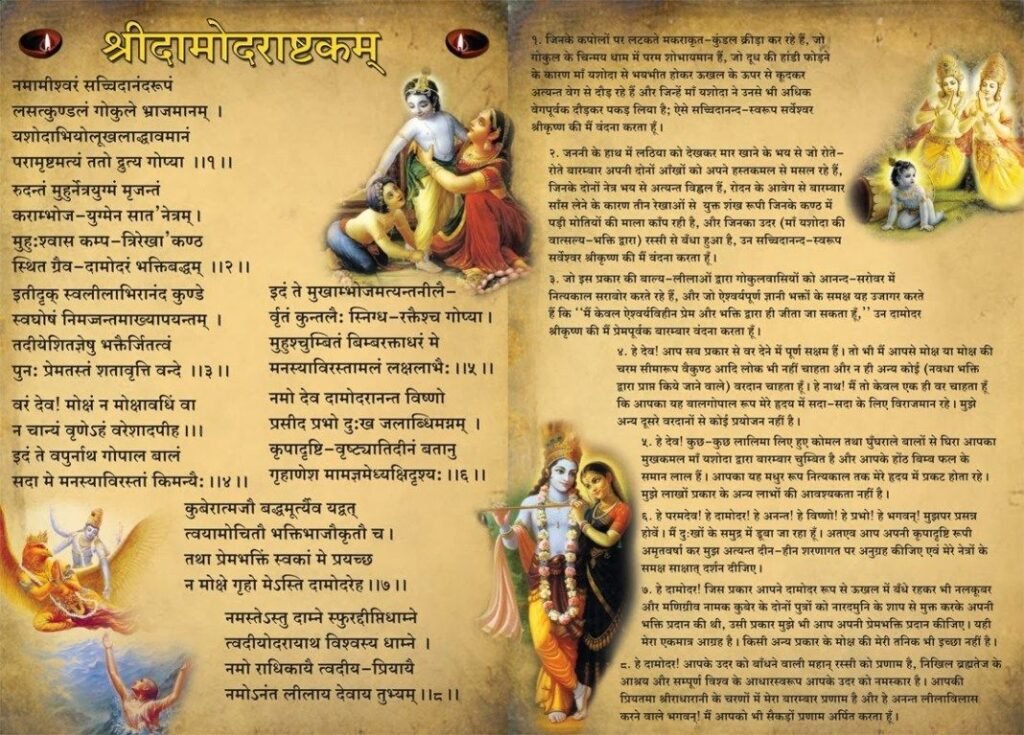 श्रीदामोदराष्टकम्
नमामीश्वरं सच्चिदानंदरूपं
लसत्कुण्डलं गोकुले भ्राजमानम् ।
यशोदाभियोलूखलाद्धावमानं
परामृष्टमत्यं ततो द्रुत्य गोप्या ।।१।।
रुदन्तं मुहुर्नेत्रयुग्मं मृजन्तं
कराम्भोज-युग्मेन सात'नेत्रम्।
मुहुःश्वास कम्प-त्रिरेखा'कण्ठ
स्थित ग्रैव-दामोदरं भक्तिबद्धम् ।।२।।
इतीदृक् स्वलीलाभिरानंद कुण्डे
स्वघोषं निमज्जन्तमाख्यापयन्तम् ।
तदीयेशितज्ञेषु भक्तैर्जितत्वं
पुनः प्रेमतस्तं शतावृत्ति वन्दे ।।३।।
वरं देव! मोक्षं न मोक्षावधिं वा
न चान्यं वृणेऽहं वरेशादपीह।।।
इदं ते वपुर्नाथ गोपाल बालं
सदा मे मनस्याविरस्तां किमन्यैः।।४।।
इदं ते मुखाम्भोजमत्यन्तनीलै-
र्वृतं कुन्तलैः स्निग्ध-रक्तैश्च गोप्या।
मुहुश्चुम्बितं बिम्बरक्ताधरं मे
मनस्याविरास्तामलं लक्षलाभैः।।५।।
नमो देव दामोदरानन्त विष्णो
प्रसीद प्रभो दुःख जलाब्धिमग्नम् ।
कृपादृष्टि-वृष्ट्यातिदीनं बतानु
गृहाणेश मामज्ञमेध्यक्षिदृश्यः।।६।।
कुबेरात्मजौ बद्धमूर्त्यैव यद्वत्
त्वयामोचितौ भक्तिभाजौकृतौ च।
तथा प्रेमभक्तिं स्वकां मे प्रयच्छ
न मोक्षे गृहो मेऽस्ति दामोदरेह।।७।।
नमस्तेऽस्तु दाम्ने स्फुरद्दीप्तिधाम्ने
त्वदीयोदरायाथ विश्वस्य धाम्ने ।
नमो राधिकायै त्वदीय-प्रियायै
नमोऽनंत लीलाय देवाय तुभ्यम्।।८।।
१. जिनके कपोलों पर लटकते मकराकृत-कुंडल क्रीड़ा कर रहे हैं, जो
गोकुल के चिन्मय धाम में परम शोभायमान हैं, जो दूध की हांडी फोड़ने
के कारण माँ यशोदा से भयभीत होकर ऊखल के ऊपर से कूदकर
अत्यन्त वेग से दौड़ रहे हैं और जिन्हें माँ यशोदा ने उनसे भी अधिक
वेगपूर्वक दौड़कर पकड़ लिया है; ऐसे सच्चिदानन्द-स्वरूप सर्वेश्वर
श्रीकृष्ण की मैं वंदना करता हूँ।
२. जननी के हाथ में लठिया को देखकर मार खाने के भय से जो रोते-
रोते बारम्बार अपनी दोनों आँखों को अपने हस्तकमल से मसल रहे हैं,
जिनके दोनों नेत्र भय से अत्यन्त विह्वल हैं, रोदन के आवेग से बारम्बार
साँस लेने के कारण तीन रेखाओं से युक्त शंख रूपी जिनके कण्ठ में
पड़ी मोतियों की माला काँप रही है, और जिनका उदर (माँ यशोदा की
वात्सल्य-भक्ति द्वारा) रस्सी से बँधा हुआ है, उन सच्चिदानन्द-स्वरूप
सर्वेश्वर श्रीकृष्ण की मैं वंदना करता हूँ।
३. जो इस प्रकार की बाल्य-लीलाओं द्वारा गोकुलवासियों को आनन्द-सरोवर में
नित्यकाल सराबोर करते रहे हैं, और जो ऐश्वर्यपूर्ण ज्ञानी भक्तों के समक्ष यह उजागर करते
हैं कि ''मैं केवल ऐश्वर्यविहीन प्रेम और भक्ति द्वारा ही जीता जा सकता हूँ,'' उन दामोदर
श्रीकृष्ण की मैं प्रेमपूर्वक बारम्बार वंदना करता हूँ।
४. हे देव! आप सब प्रकार से वर देने में पूर्ण सक्षम हैं। तो भी मैं आपसे मोक्ष या मोक्ष की
चरम सीमारूप वैकुण्ठ आदि लोक भी नहीं चाहता और न ही अन्य कोई (नवधा भक्ति
द्वारा प्राप्त किये जाने वाले) वरदान चाहता हूँ। हे नाथ! मैं तो केवल एक ही वर चाहता हूँ
कि आपका यह बालगोपाल रूप मेरे हृदय में सदा-सदा के लिए विराजमान रहे। मुझे
अन्य दूसरे वरदानों से कोई प्रयोजन नहीं है।
५. हे देव! कुछ-कुछ लालिमा लिए हुए कोमल तथा घुँघराले बालों से घिरा आपका
मुखकमल माँ यशोदा द्वारा बारम्बार चुम्बित है और आपके होंठ बिम्ब फल के
समान लाल हैं। आपका यह मधुर रूप नित्यकाल तक मेरे हृदय में प्रकट होता रहे।
मुझे लाखों प्रकार के अन्य लाभों की आवश्यकता नहीं है।
६. हे परमदेव! हे दामोदर! हे अनन्त! हे विष्णो! हे प्रभो! हे भगवन्! मुझपर प्रसन्न
होवें। मैं दुःखों के समुद्र में डूबा जा रहा हूँ। अतएव आप अपनी कृपादृष्टि रूपी
अमृतवर्षा कर मुझ अत्यन्त दीन-हीन शरणागत पर अनुग्रह कीजिए एवं मेरे नेत्रों के
समक्ष साक्षात् दर्शन दीजिए।
७. हे दामोदर! जिस प्रकार आपने दामोदर रूप से ऊखल में बँधे रहकर भी नलकूबर
और मणिग्रीव नामक कुबेर के दोनों पुत्रों को नारदमुनि के शाप से मुक्त करके अपनी
भक्ति प्रदान की थी, उसी प्रकार मुझे भी आप अपनी प्रेमभक्ति प्रदान कीजिए। यही
मेरा एकमात्र आग्रह है। किसी अन्य प्रकार के मोक्ष की मेरी तनिक भी इच्छा नहीं है।
८. हे दामोदर! आपके उदर को बाँधने वाली महान् रस्सी को प्रणाम है, निखिल ब्रह्मतेज के
आश्रय और सम्पूर्ण विश्व के आधारस्वरूप आपके उदर को नमस्कार है। आपकी
प्रियतमा श्रीराधारानी के चरणों में मेरा बारम्बार प्रणाम है और हे अनन्त लीलाविलास
करने वाले भगवन्! मैं आपको भी सैकड़ों प्रणाम अर्पित करता हूँ।